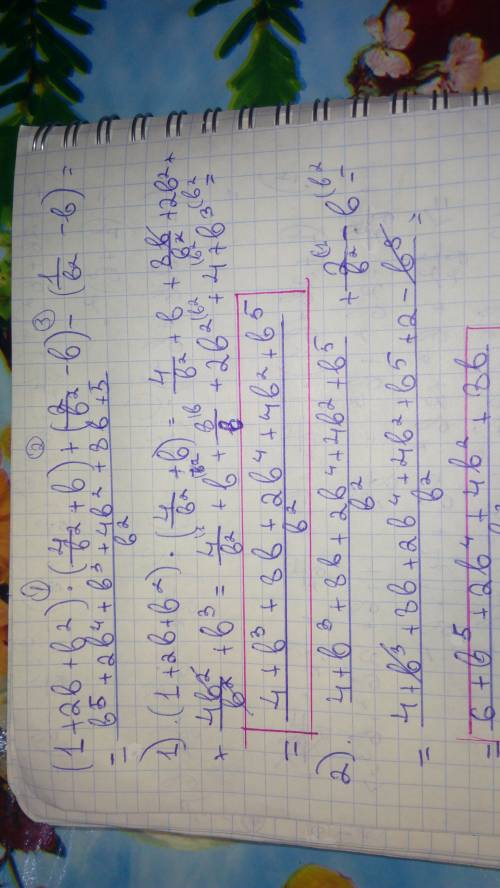 ① ② ③
(1+2b+b²)·(4/b²+b)+(2/b²-b)-(1/b²-b)=
= b⁵+2b⁴+b³+4b²+8b+5/b²
1).(1+2b+b²)·(4/b²+b)= 4/b²+b+8b/b²+2b²+
+4b²/b²+b³= 4/b²+b+8/b+2b²+4+b³=
= 4+b³+8b+2b⁴+4b²+b⁵/b²
2). 4+b³+8b+2b⁴+4b²+b⁵/b²+2/b²-b=
= 4+b³+8b+2b⁴+4b²+b⁵+2-b³/b²=
= 6+b⁵+2b⁴+4b²+8b